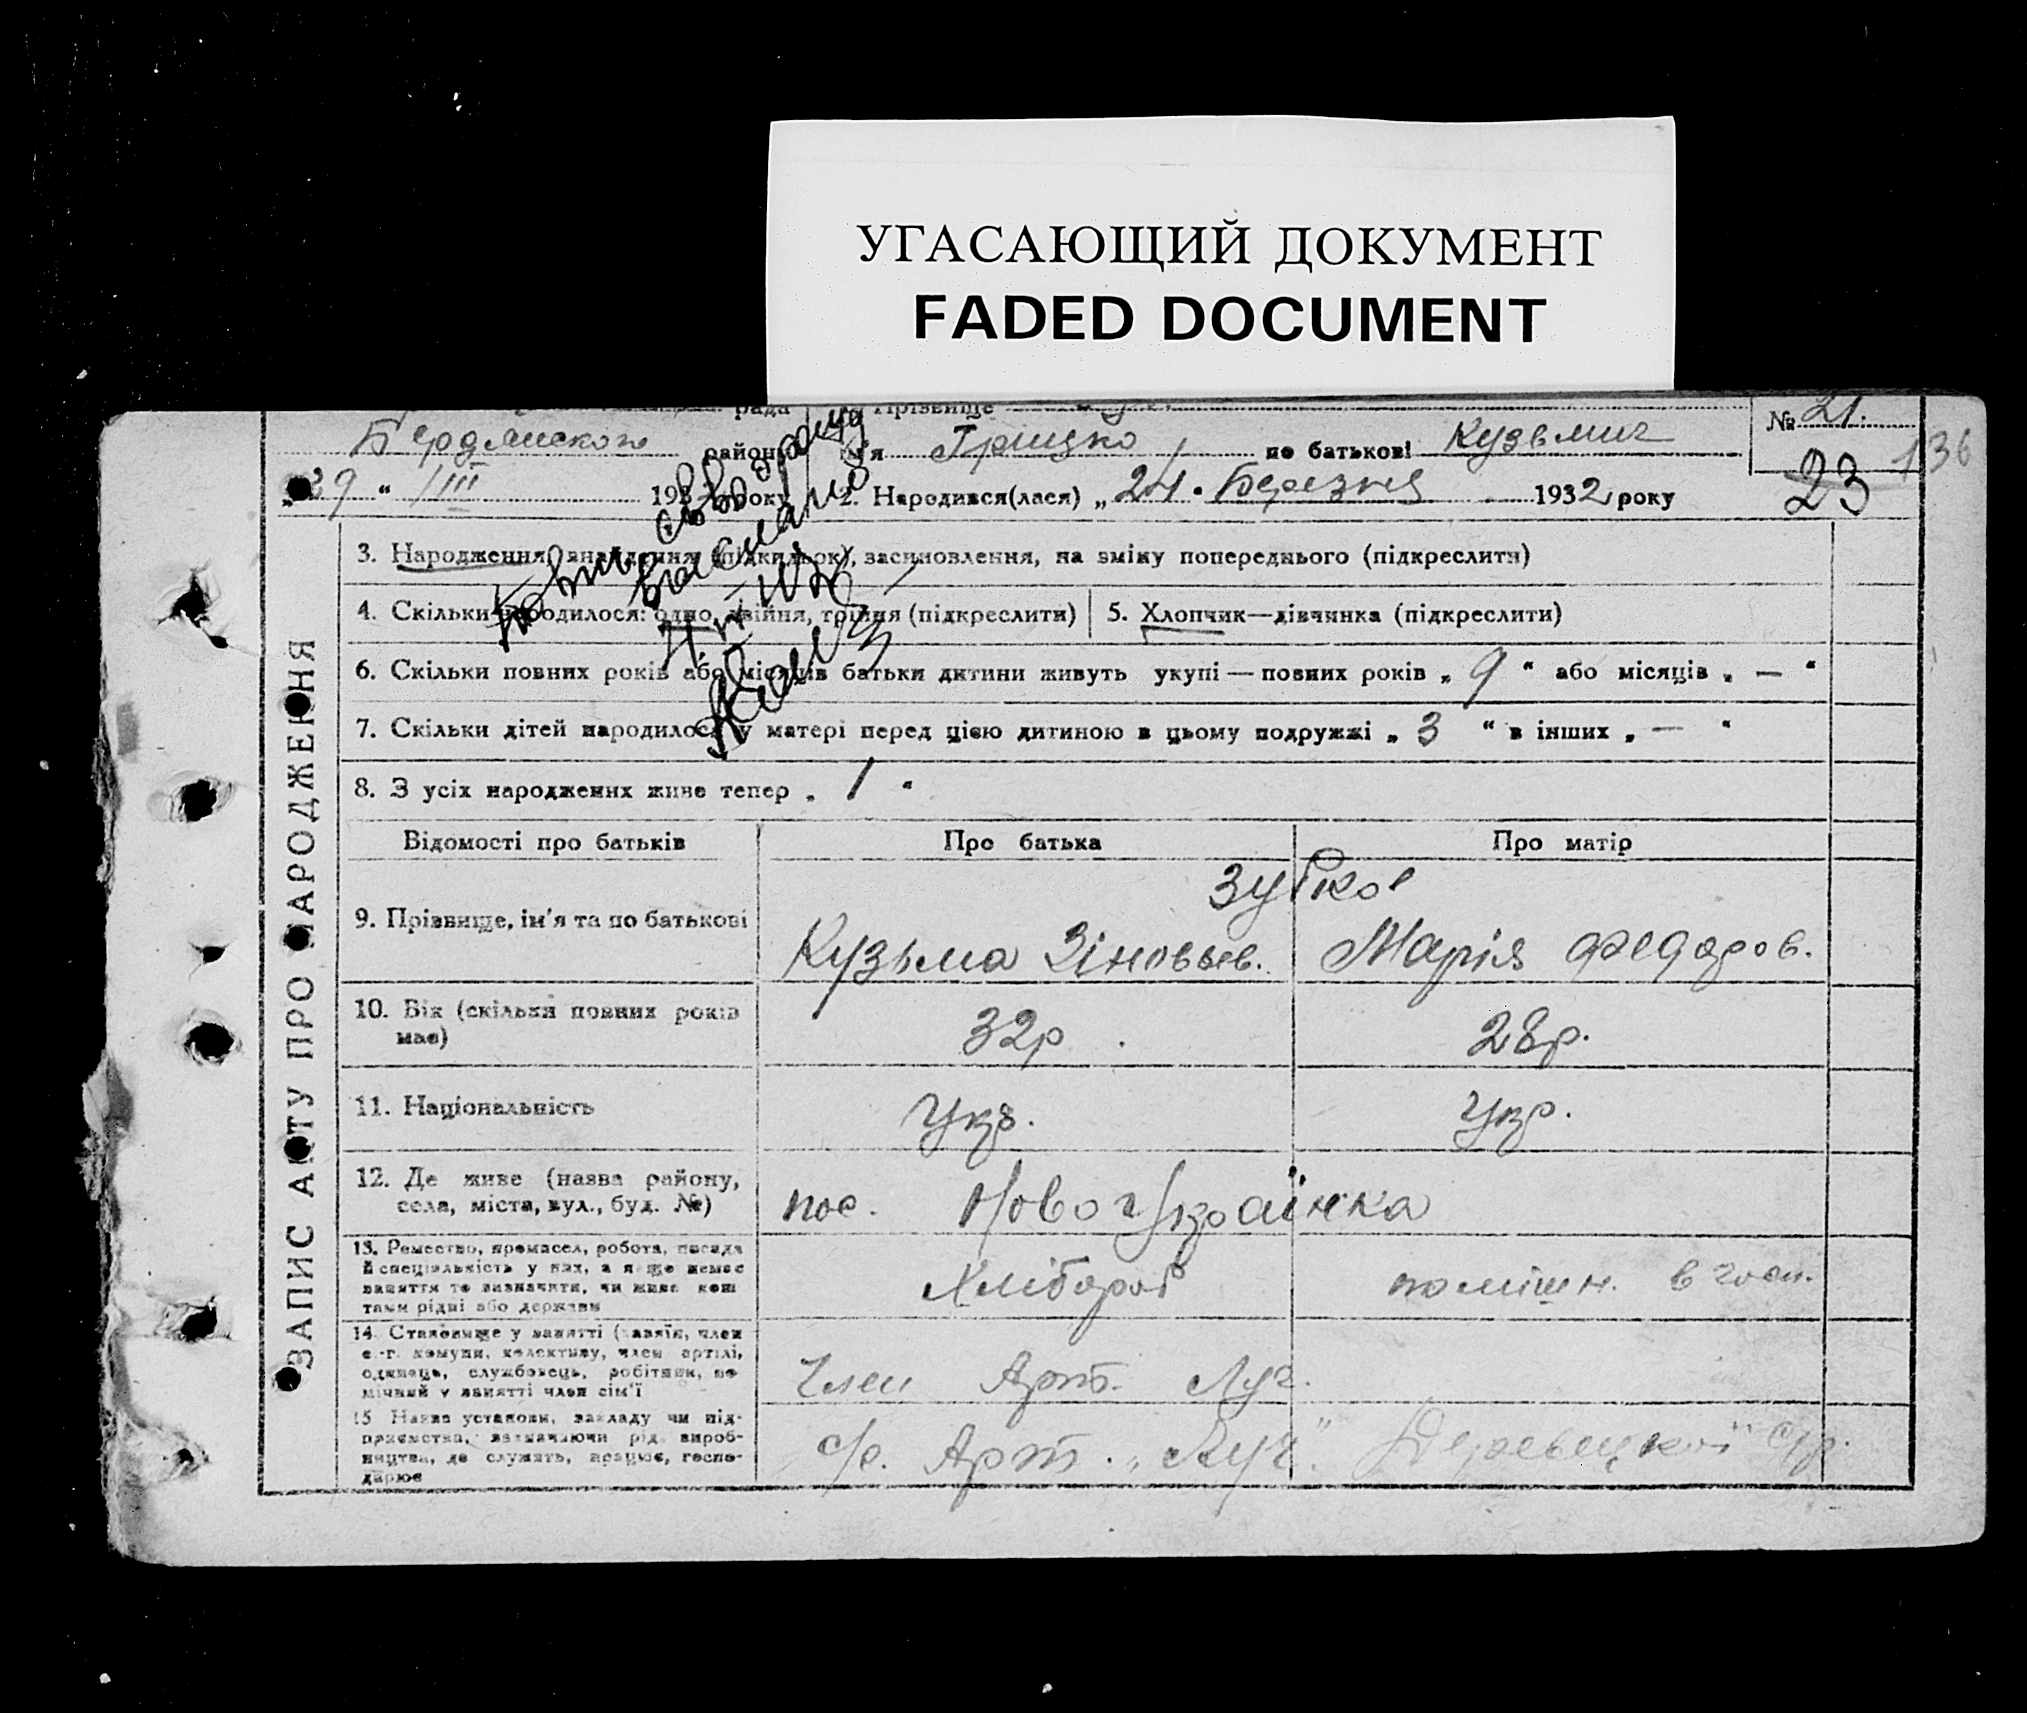 УГАСАЮЩИЙ ДОКУМЕНТ
FADED DOCUMENT
рада Прізвище
№ 21.
Бердянского району ім'я Грицко по батькові Кузьмич
136
„29“ /III 193 року 2. Народився(лася) „24. Березня 1932 року
23
Повт. свідоцтво
видано
ЗАПИС АКТУ ПРО НАРОДЖЕННЯ
3. Народження, знайдення (підкидьок), засиновлення, на зміну попереднього (підкреслити)
4. Скільки народилося: одно, двійня, трійня (підкреслити) 5. Хлопчик—дівчинка (підкреслити)
6. Скільки повних років або місяців батьки дитини живуть укупі — повних років „ 9 “ або місяців „ — “
7. Скільки дітей народилось у матері перед цією дитиною в цьому подружжі „ 3 “ в інших „ — “
8. З усіх народжених живе тепер „ 1 “
Відомості про батьків Про батька Про матір
Зубков
9. Прізвище, ім'я та по батькові Кузьма Зіновьев. Марія Федоров.
10. Вік (скільки повних років має) 32р 28р.
11. Національність Укр. Укр.
12. Де живе (назва району,
села, міста, вул., буд. №) пос. Ново Українка
13. Ремество, промисел, робота, посада
й спеціальність у них, а якщо немає
заняття то визначити, чи живе кош
тами рідні або держави Хлібороб поміщн. в госп.
14. Становище у занятті (хазяїн, член
с.-г. комуни, колективу, член артілі,
одинець, службовець, робітник, по
мічний у занятті член сім'ї Член Арт. Луч.
15. Назва установи, закладу чи під-
приємства, зазначаючи рід вироб-
ництва, де служить, працює, госпо-
дарює с/г. Арт. „Луч“.